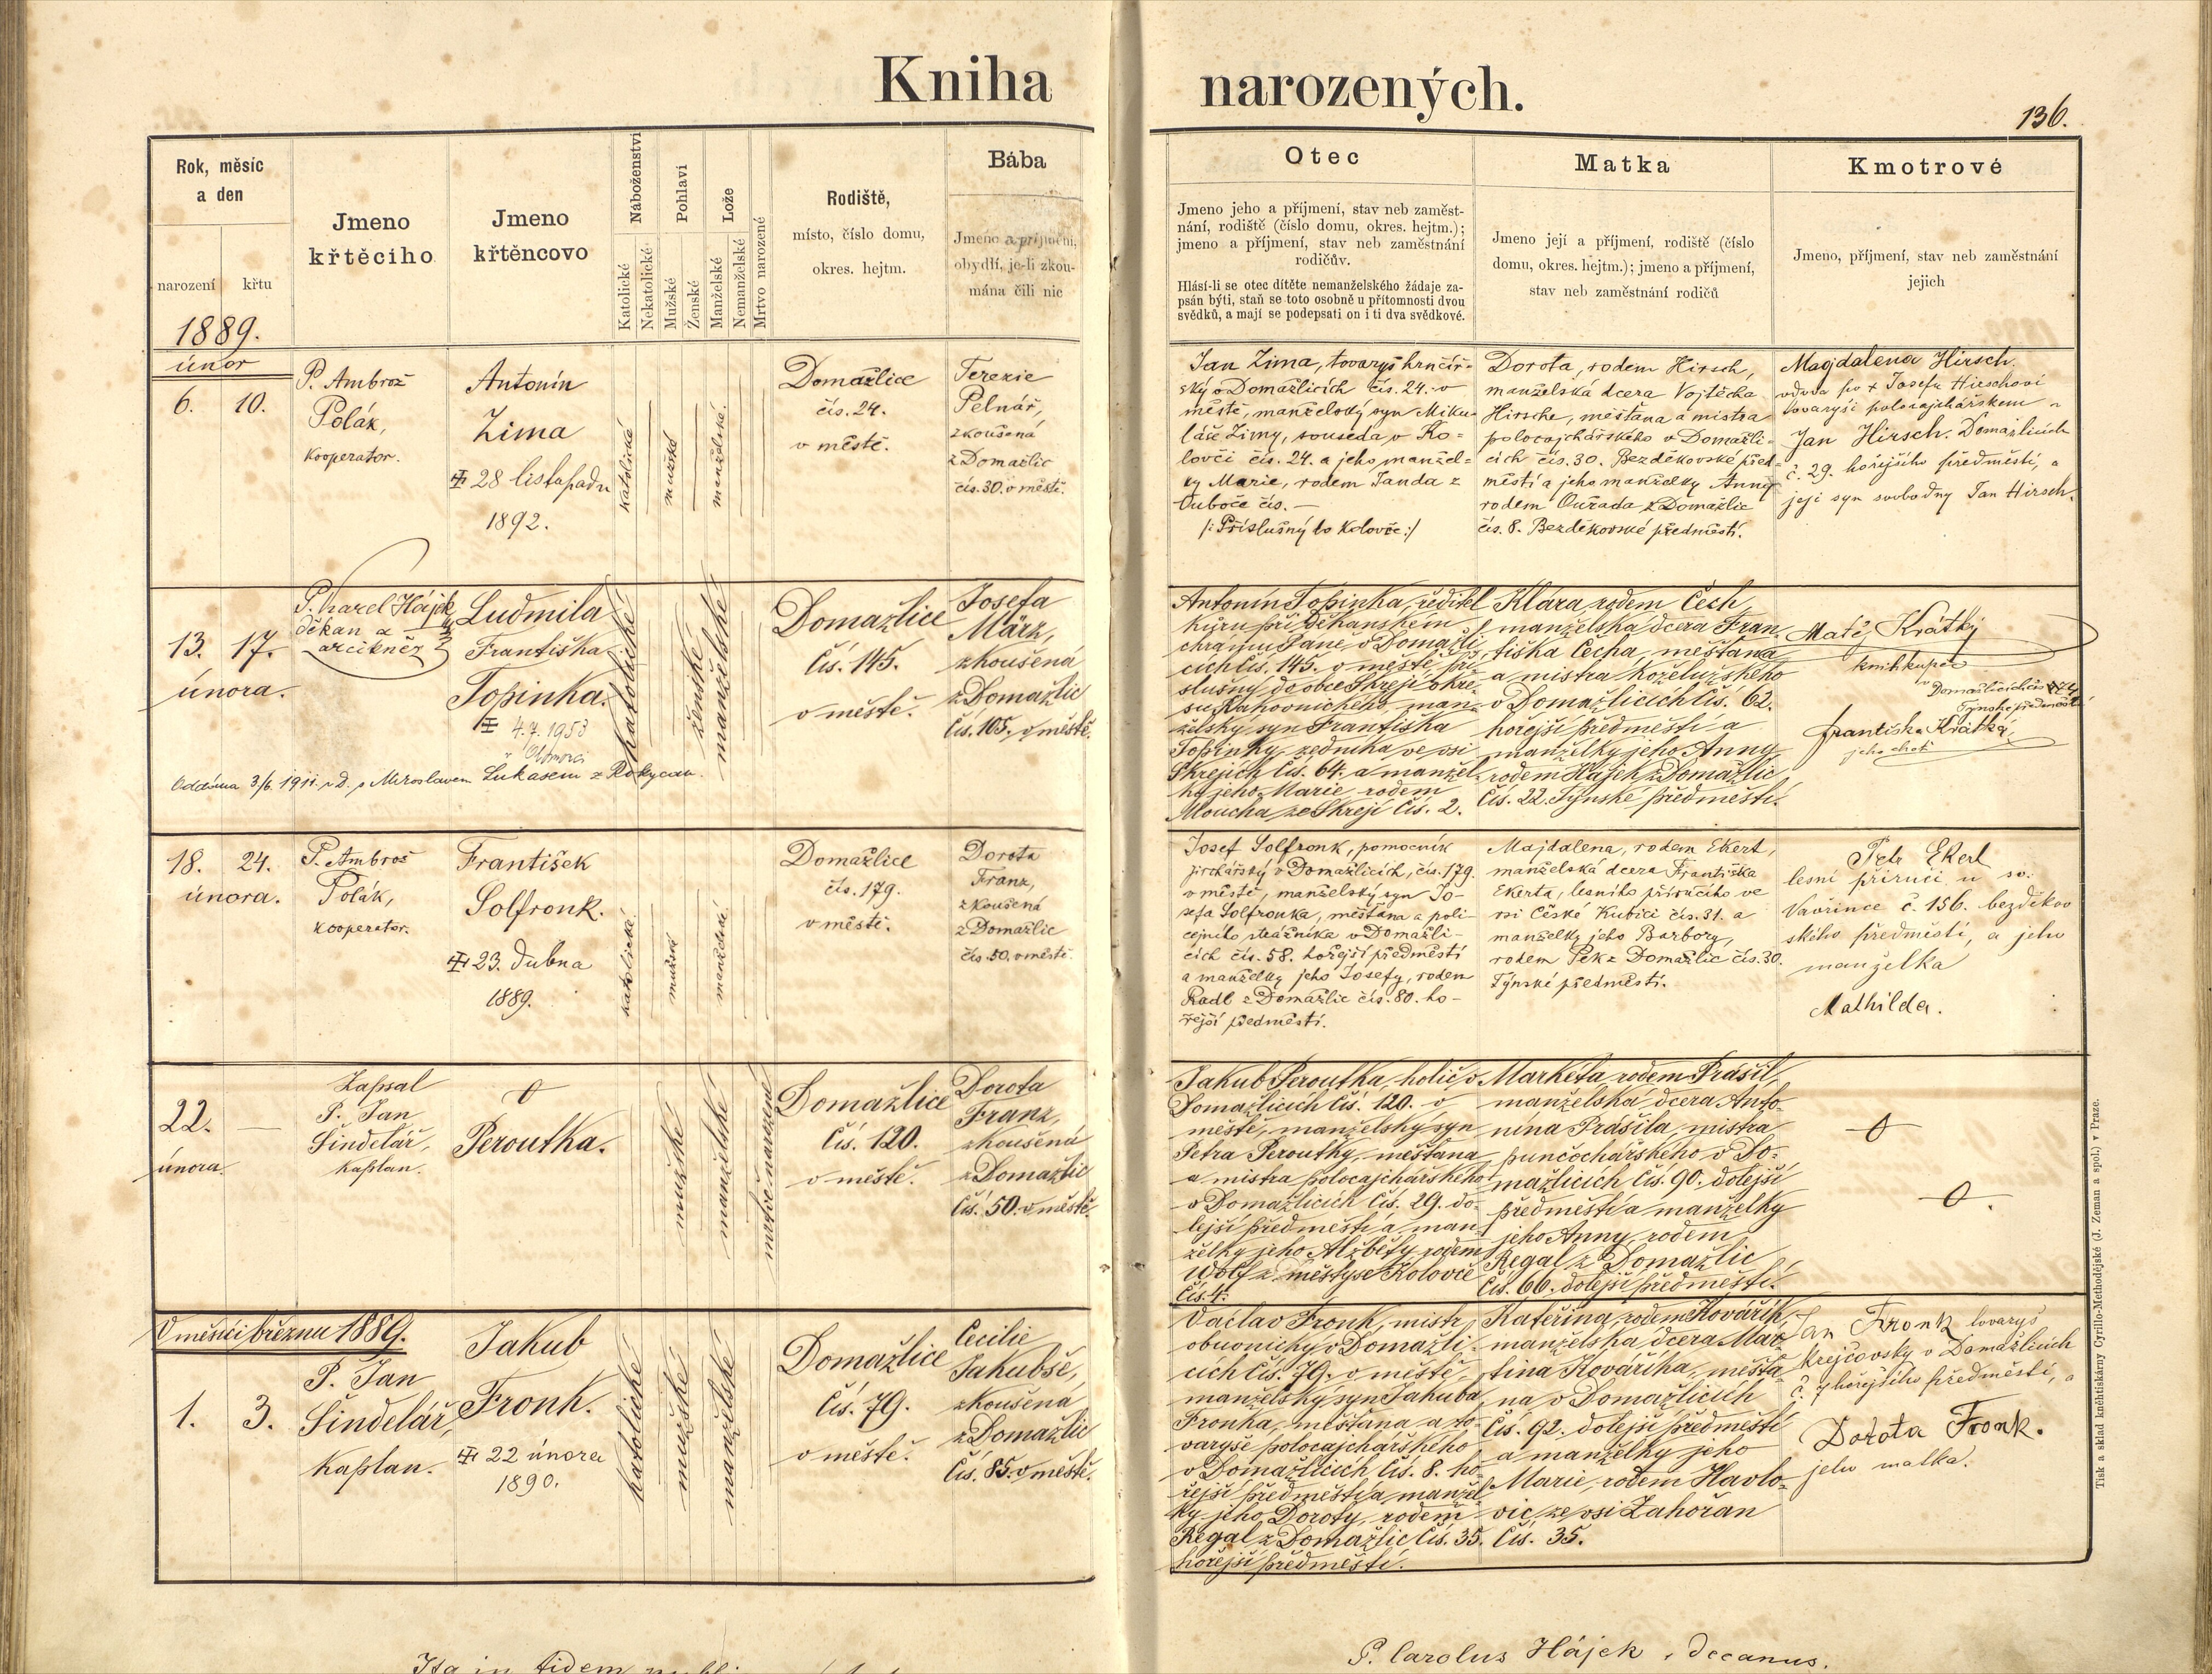 Kniha narozených.
136.
Rok, měsíc
a den
narození
křtu
Jmeno
křtěcího
Jmeno
křtěncovo
Náboženství
Katolické
Nekatolické
Pohlaví
Mužské
Ženské
Lože
Manželské
Nemanželské
Mrtvo narozené
Rodiště,
místo, číslo domu,
okres. hejtm.
Bába
Jmeno a příjmení,
obydlí, je-li zkou-
mána čili nic
Otec
Jmeno jeho a příjmení, stav neb zaměst-
nání, rodiště (číslo domu, okres. hejtm.);
jmeno a příjmení, stav neb zaměstnání
rodičův.
Hlásí-li se otec dítěte nemanželského žádaje za-
psán býti, staň se toto osobně u přítomnosti dvou
svědků, a mají se podepsati on i ti dva svědkové.
Matka
Jmeno její a příjmení, rodiště (číslo
domu, okres. hejtm.); jmeno a příjmení,
stav neb zaměstnání rodičů
Kmotrové
Jmeno, příjmení, stav neb zaměstnání
jejich
1889.
únor
6. 10.
P. Ambrož
Polák,
kooperator.
Antonín
Zima
28 listopadu
1892.
katolické
mužské
manželské.
Domažlice
čís. 24.
v městě.
Terezie
Pelnář,
zkoušená
z Domažlic
čís. 30. v městě.
Jan Zima, tovaryš hrnčíř-
ský v Domažlicích čís. 24. v
městě, manželský syn Miku-
láše Zimy, souseda v Ko-
lovči čís. 24. a jeho manžel-
ky Marie, rodem Janda z
Úboče čís. —
/: Příslušný do Kolovče :/
Dorota, rodem Hirsch,
manželská dcera Vojtěcha
Hirsche, měšťana a mistra
polocajchářského v Domažli-
cích čís. 30. Bezděkovské před-
městí a jeho manželky Anny
rodem Ouřada z Domažlic
čís. 8. Bezděkovské předměstí.
Magdalena Hirsch.
vdova po + Josefu Hirschovi
tovaryši polocajchářském v
Jan Hirsch. Domažlicích
č. 29. hořejšího předměstí, a
její syn svobodný Jan Hirsch.
13. 17.
února.
P. Karel Hájek
děkan a
arcikněz
Ludmila
Františka
Topinka.
4.7. 1953
v Olomouci
Oddána 3/6. 1911. v D. s Miroslavem Lukasem z Rokycan.
katolické
ženské
manželské
Domažlice
Čís. 145.
v městě.
Josefa
März,
zkoušená
z Domažlic
Čís. 105. v městě.
Antonín Topinka, ředitel
kůru při Děkanském
chrámu Páně v Domažli-
cích Čís. 145. v městě, pří-
slušný do obce Skrejí okre-
su Rakovnického, man-
želský syn Františka
Topinky, zedníka ve vsi
Skrejích Čís. 64. a manžel-
ky jeho Marie rodem
Moucha ze Skrejí Čís. 2.
Klára rodem Čech
manželská dcera Fran-
tiška Čecha, měšťana
a mistra koželužského
v Domažlicích Čís. 62.
hořejší předměstí a
manželky jeho Anny
rodem Hájek z Domažlic
Čís. 22. Týnské předměstí.
Matěj Krátký
knihkupec
v Domažlicích čís. 174
Týnské předměstí
Františka Krátká,
jeho choť
18. 24.
února.
P. Ambrož
Polák,
kooperator.
František
Solfronk.
23. dubna
1889.
katolické
mužské
manželské
Domažlice
čís. 179.
v městě.
Dorota
Franz,
zkoušená
z Domažlic
čís. 50. v městě.
Josef Solfronk, pomocník
jirchářský v Domažlicích, čís. 179.
v městě, manželský syn Jo-
sefa Solfronka, měšťana a poli-
cejního strážníka v Domažli-
cích čís. 58. hořejší předměstí
a manželky jeho Josefy, rodem
Radl z Domažlic čís. 80. ho-
řejší předměstí.
Majdalena, rodem Ekert,
manželská dcera Františka
Ekerta, lesního příručího ve
vsi České Kubici čís. 31. a
manželky jeho Barbory,
rodem Pek z Domažlic čís. 30.
Týnské předměstí.
Petr Ekert
lesní příručí u sv.
Vavřince č. 156. bezděkov
ského předměstí, a jeho
manželka
Mathilda.
22. —
února
Zapsal
P. Jan
Šindelář,
kaplan.
Peroutka.
mužské
manželské
mrtvě narozené
Domažlice
Čís. 120.
v městě.
Dorota
Franz,
zkoušená
z Domažlic
Čís. 50. v městě.
Jakub Peroutka, holič v
Domažlicích Čís. 120. v
městě, manželský syn
Petra Peroutky, měšťana
a mistra polocajchářského
v Domažlicích Čís. 29. do-
lejší předměstí a man-
želky jeho Alžběty, rodem
Wolf z městyse Kolovče
Čís. 4.
Markéta rodem Prášil,
manželská dcera Anto-
nína Prášila, mistra
punčochářského v Do-
mažlicích Čís. 90. dolejší
předměstí a manželky
jeho Anny, rodem
Regal z Domažlic,
Čís. 66. dolejší předměstí.
V měsíci březnu 1889.
1. 3.
P. Jan
Šindelář,
kaplan.
Jakub
Fronk.
22 února
1890.
katolické
mužské
manželské
Domažlice
Čís. 79.
v městě.
Cecilie
Jakubše,
zkoušená
z Domažlic
Čís. 85. v městě.
Václav Fronk, mistr
obuvnický v Domažli-
cích Čís. 79. v městě,
manželský syn Jakuba
Fronka, měšťana a to-
varyše polocajchářského
v Domažlicích Čís. 8. ho-
řejší předměstí a manžel-
ky jeho Doroty, rodem
Regal z Domažlic Čís. 35.
hořejší předměstí.
Kateřina, rodem Kovářík,
manželská dcera Mar-
tina Kováříka, měšťa-
na v Domažlicích
Čís. 92. dolejší předměstí
a manželky jeho
Marie, rodem Havlo-
vic, ze vsi Zahořan
Čís. 35.
Jan Fronk tovaryš
krejčovský v Domažlicích
č. 7 hořejšího předměstí, a
Dorota Fronk.
jeho matka.
Ita in fidem
P. Carolus Hájek, decanus.
Tisk a sklad knihtiskárny Cyrillo-Methodějské (J. Zeman a spol.) v Praze.